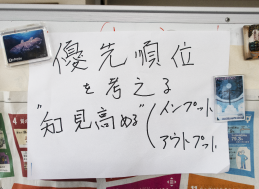 優先順位
を考える
"知見高める"(インプット
アウトプット